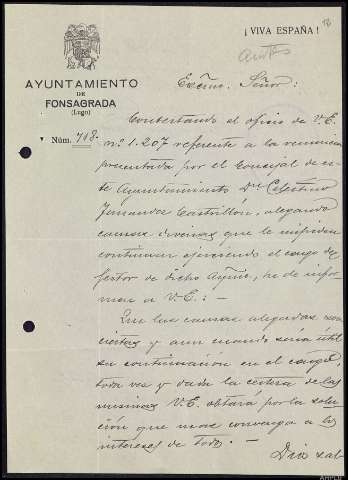 ¡VIVA ESPAÑA!
AYUNTAMIENTO
DE
FONSAGRADA
(Lugo)
Núm. 718.
Excmo. Señor:
Contestando al oficio de V.E.
nº 1.207 referente a la renuncia
presentada por el Concejal de es-
te Ayuntamiento Dn Celestino
Fernandez Castrillón, alegando
causas diversas que le impiden
continuar ejerciendo el cargo de
Gestor de dicho Aytmo, he de infor-
mar a V.E.: —
Que las causas alegadas son
ciertas y aun cuando sería útil
su continuación en el cargo,
toda vez y dada la certeza de las
mismas V.E. optará por la solu-
ción que mas convenga a los
intereses de todos. —
Dios sal-